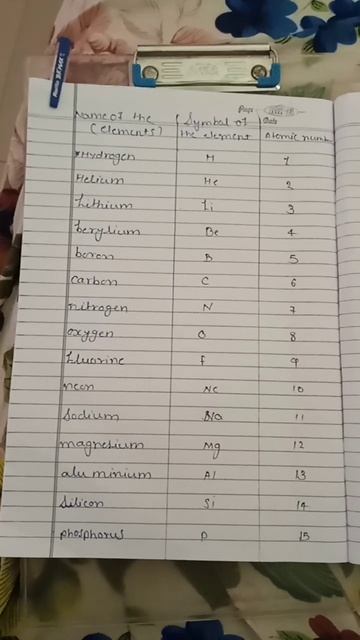 Page
Date
Name of the Symbol of Atomic number
(elements) the element
Hydrogen H 1
Helium He 2
Lithium Li 3
berylium Be 4
boron B 5
carbon C 6
nitrogen N 7
oxygen O 8
fluorine F 9
neon Ne 10
Sodium Na 11
magnesium Mg 12
alu minium Al 13
Silicon Si 14
phosphorus P 15